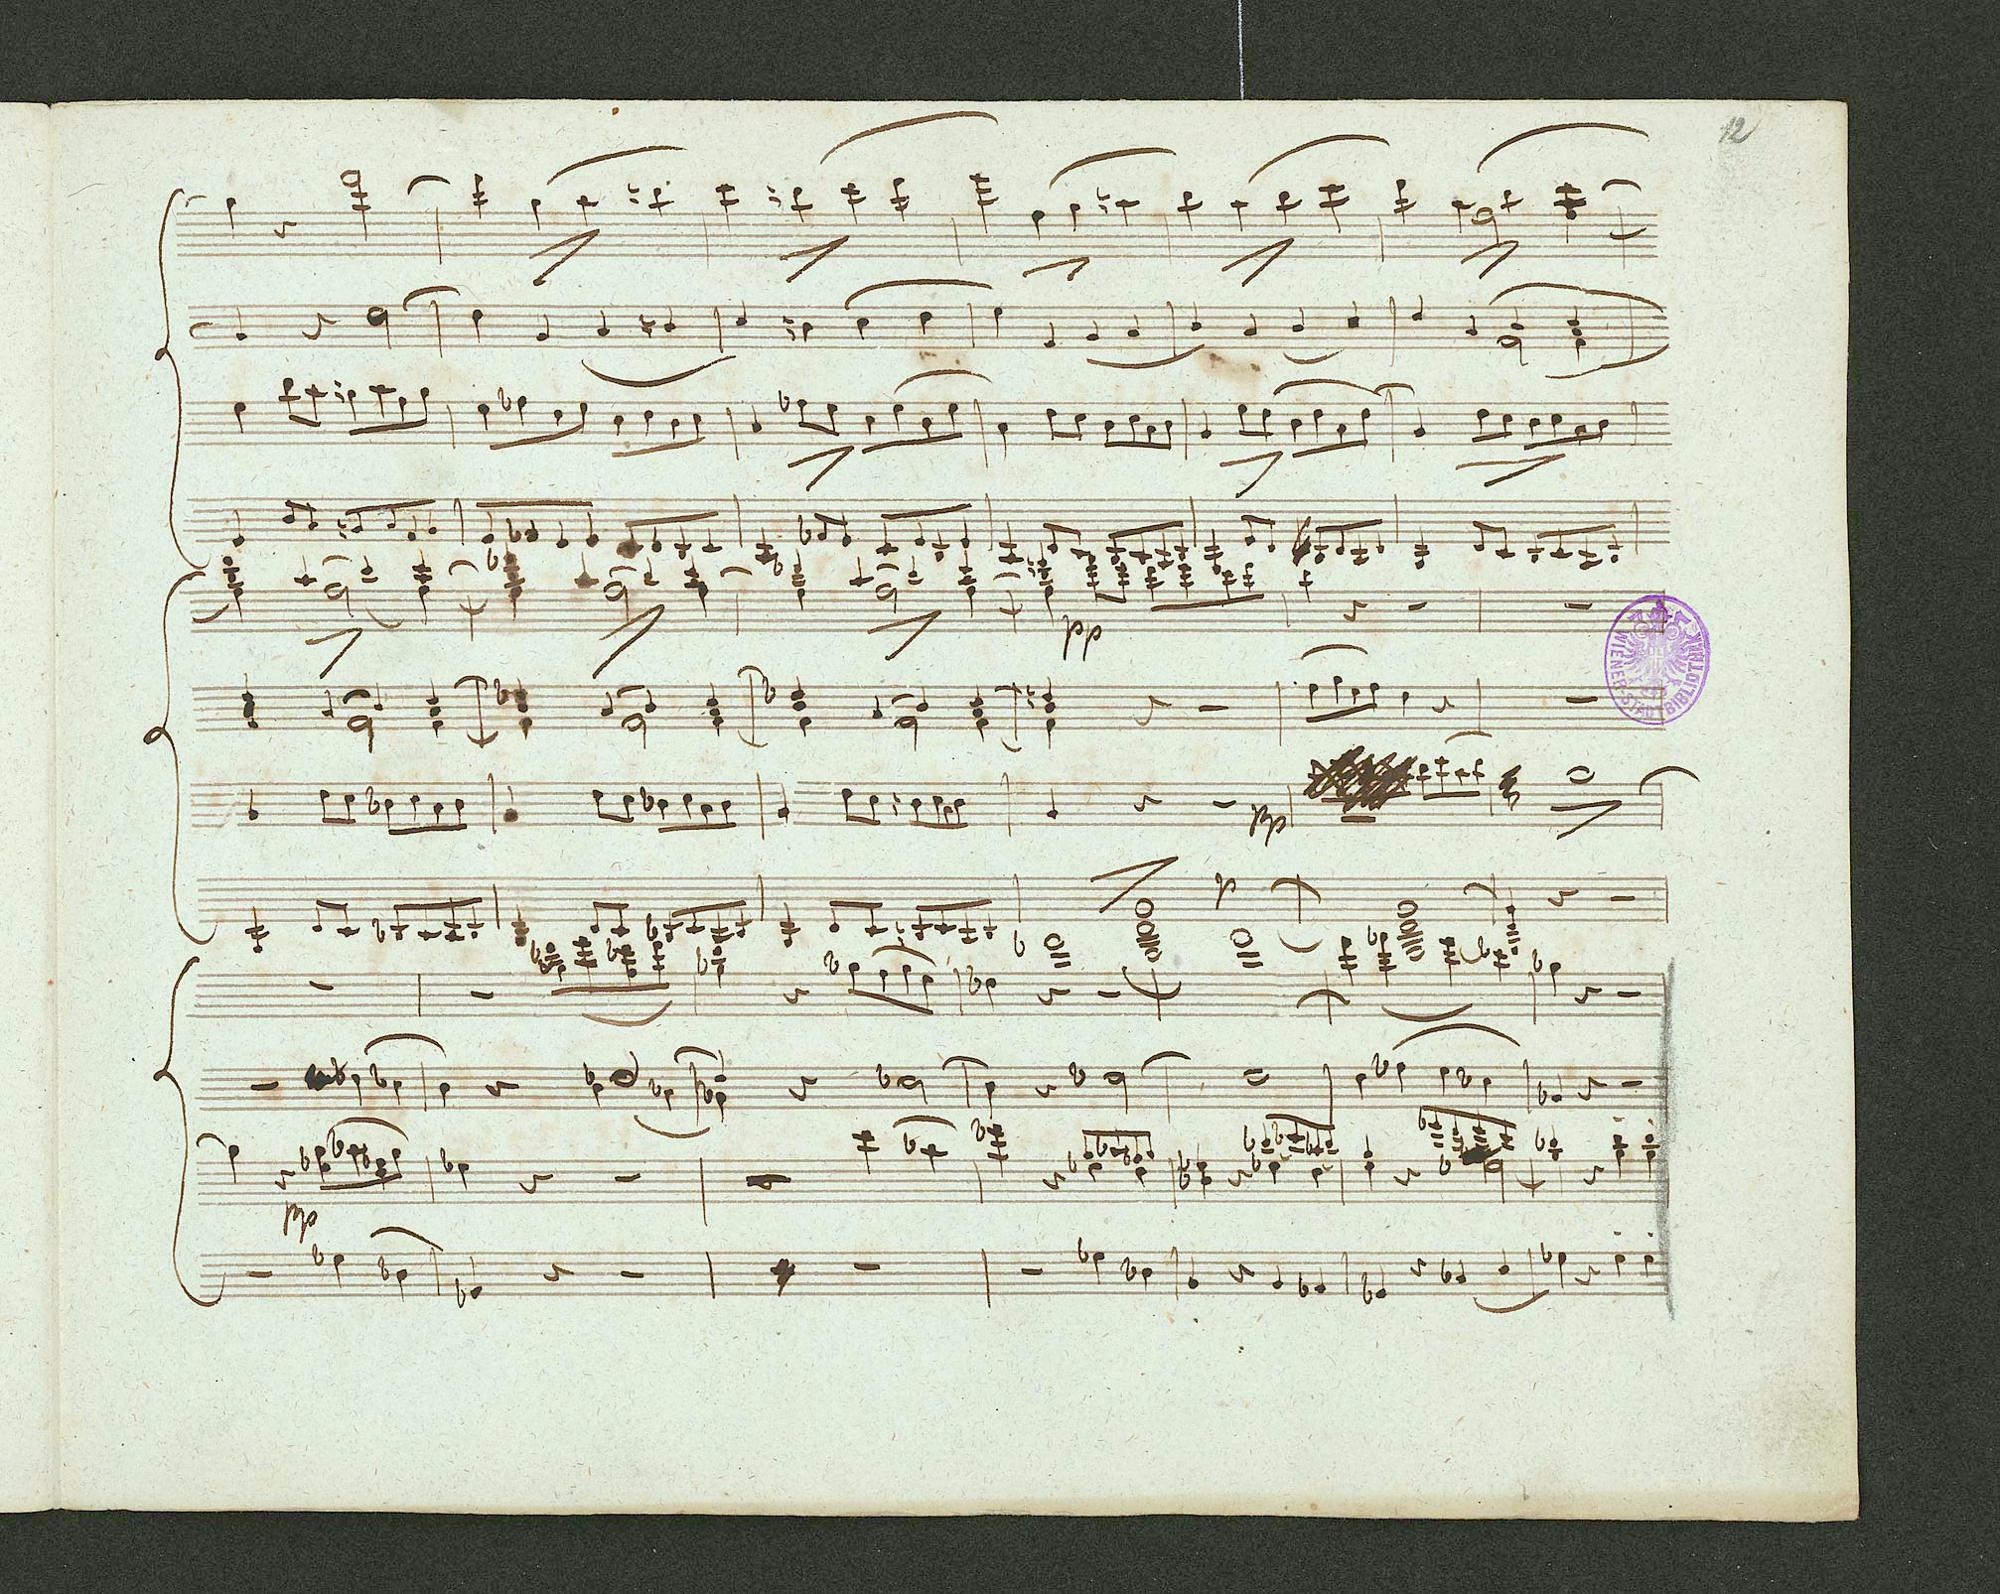 12
pp
WIENER-STADTBIBLIOTHEK
pp
p
pp